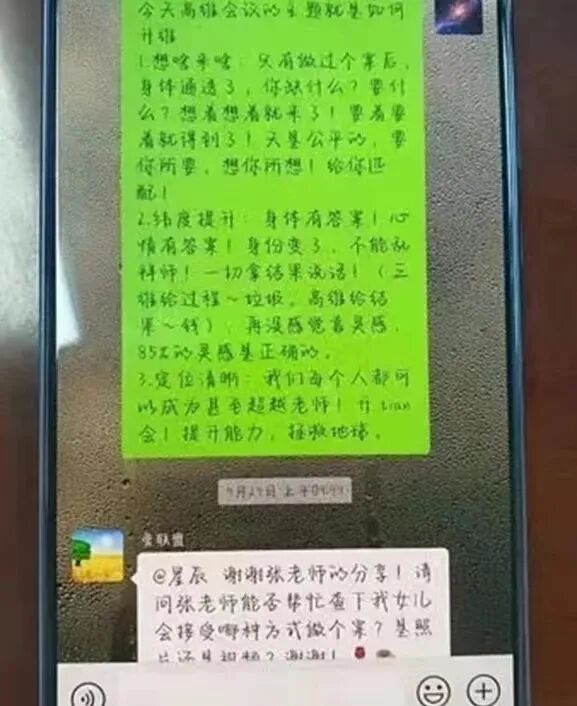 今天高维会议的主题就是如何
升维
1.想啥来啥：只有做过个案后，
身体通透了，你缺什么？要什
么？想着想着就来了！要着要
着就得到了！天是公平的，要
你所要，想你所想！给你匹
配！
2.纬度提升：身体有答案！心
情有答案！身份变了，不能乱
拜师！一切拿结果说话！（三
维给过程~垃圾，高维给结
果~钱），再没感觉着灵感，
85%的灵感是正确的。
3.定位清晰：我们每个人都可
以成为甚至超越老师！开tian
会！提升能力，拯救地球。
@星辰 谢谢张老师的分享！请
问张老师能否帮忙查下我女儿
会接受哪种方式做个案？是照
片还是视频？谢谢！